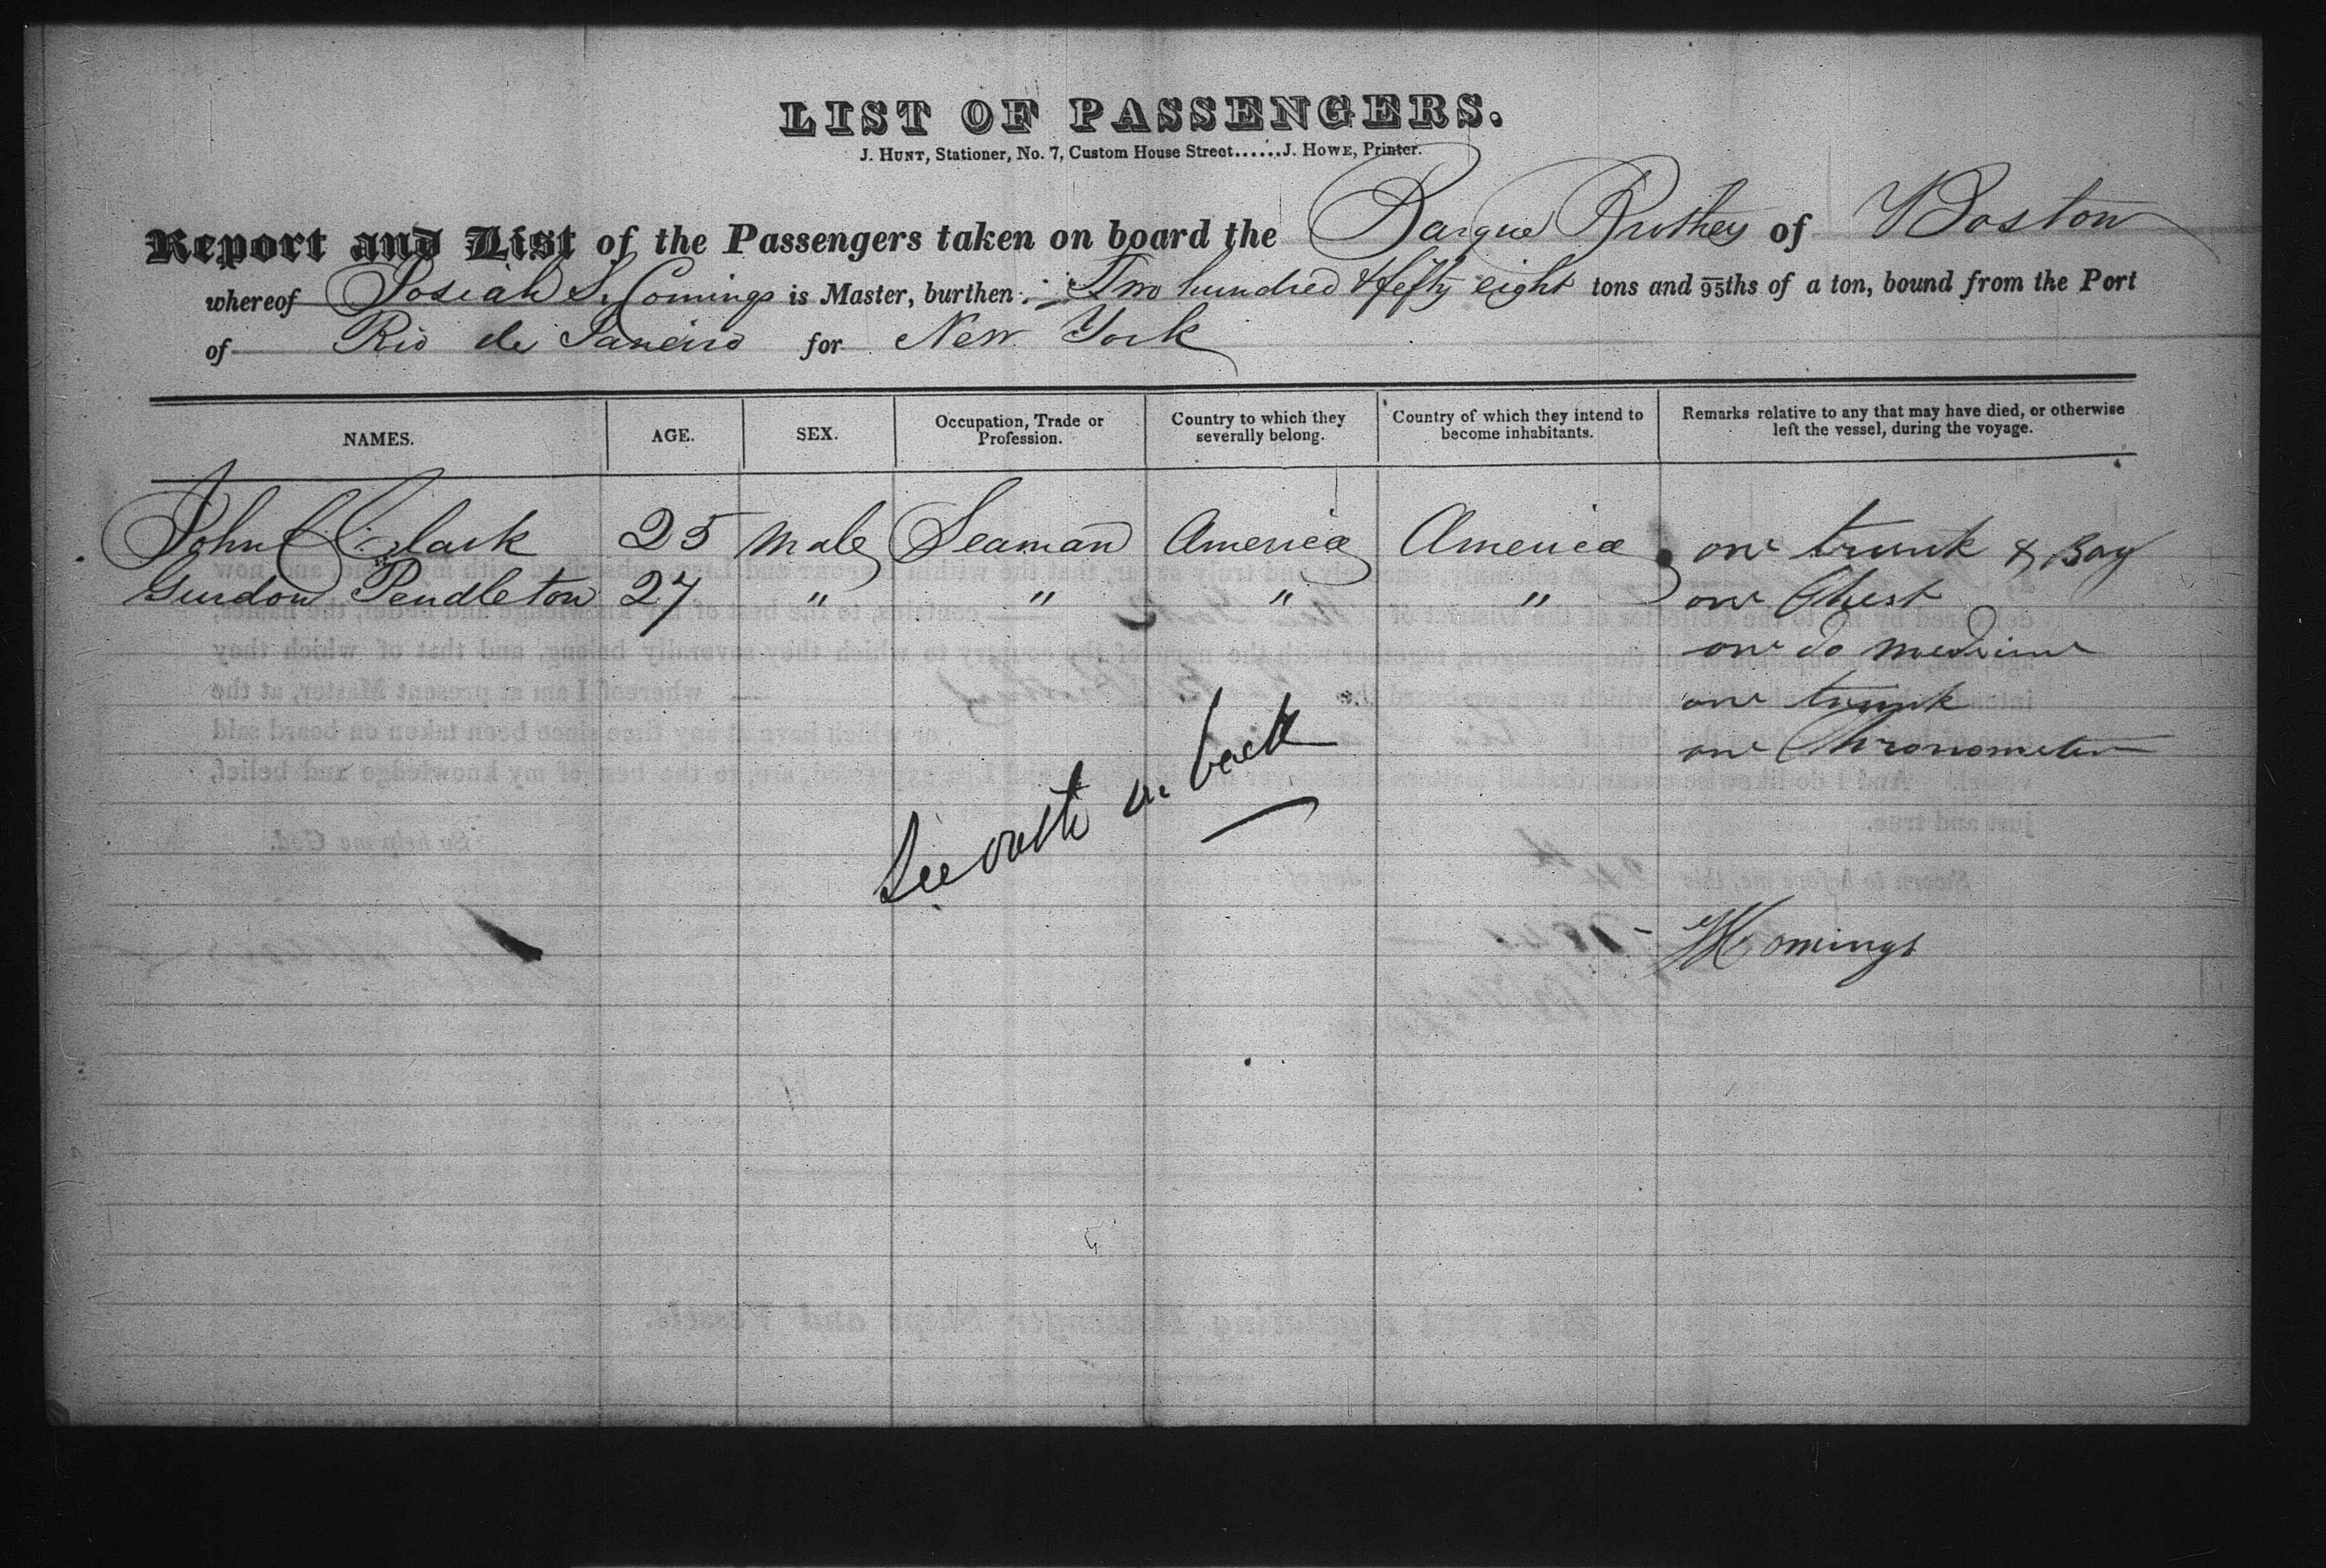 LIST OF PASSENGERS.
J. HUNT, Stationer, No. 7, Custom House Street......J. HOWE, Printer.
Report and List of the Passengers taken on board the Barque Brothers of Boston
whereof Josiah S. Comings is Master, burthen Two hundred & fifty eight tons and 95ths of a ton, bound from the Port
of Rio de Janeiro for New York
NAMES. AGE. SEX. Occupation, Trade or Profession. Country to which they severally belong. Country of which they intend to become inhabitants. Remarks relative to any that may have died, or otherwise left the vessel, during the voyage.
John C Clark 25 Male Seaman America America one trunk & Bag
Gurdon Pendleton 27 " " " " one Chest
one do medicine
one trunk
one Chronometer
See oath on back
Comings